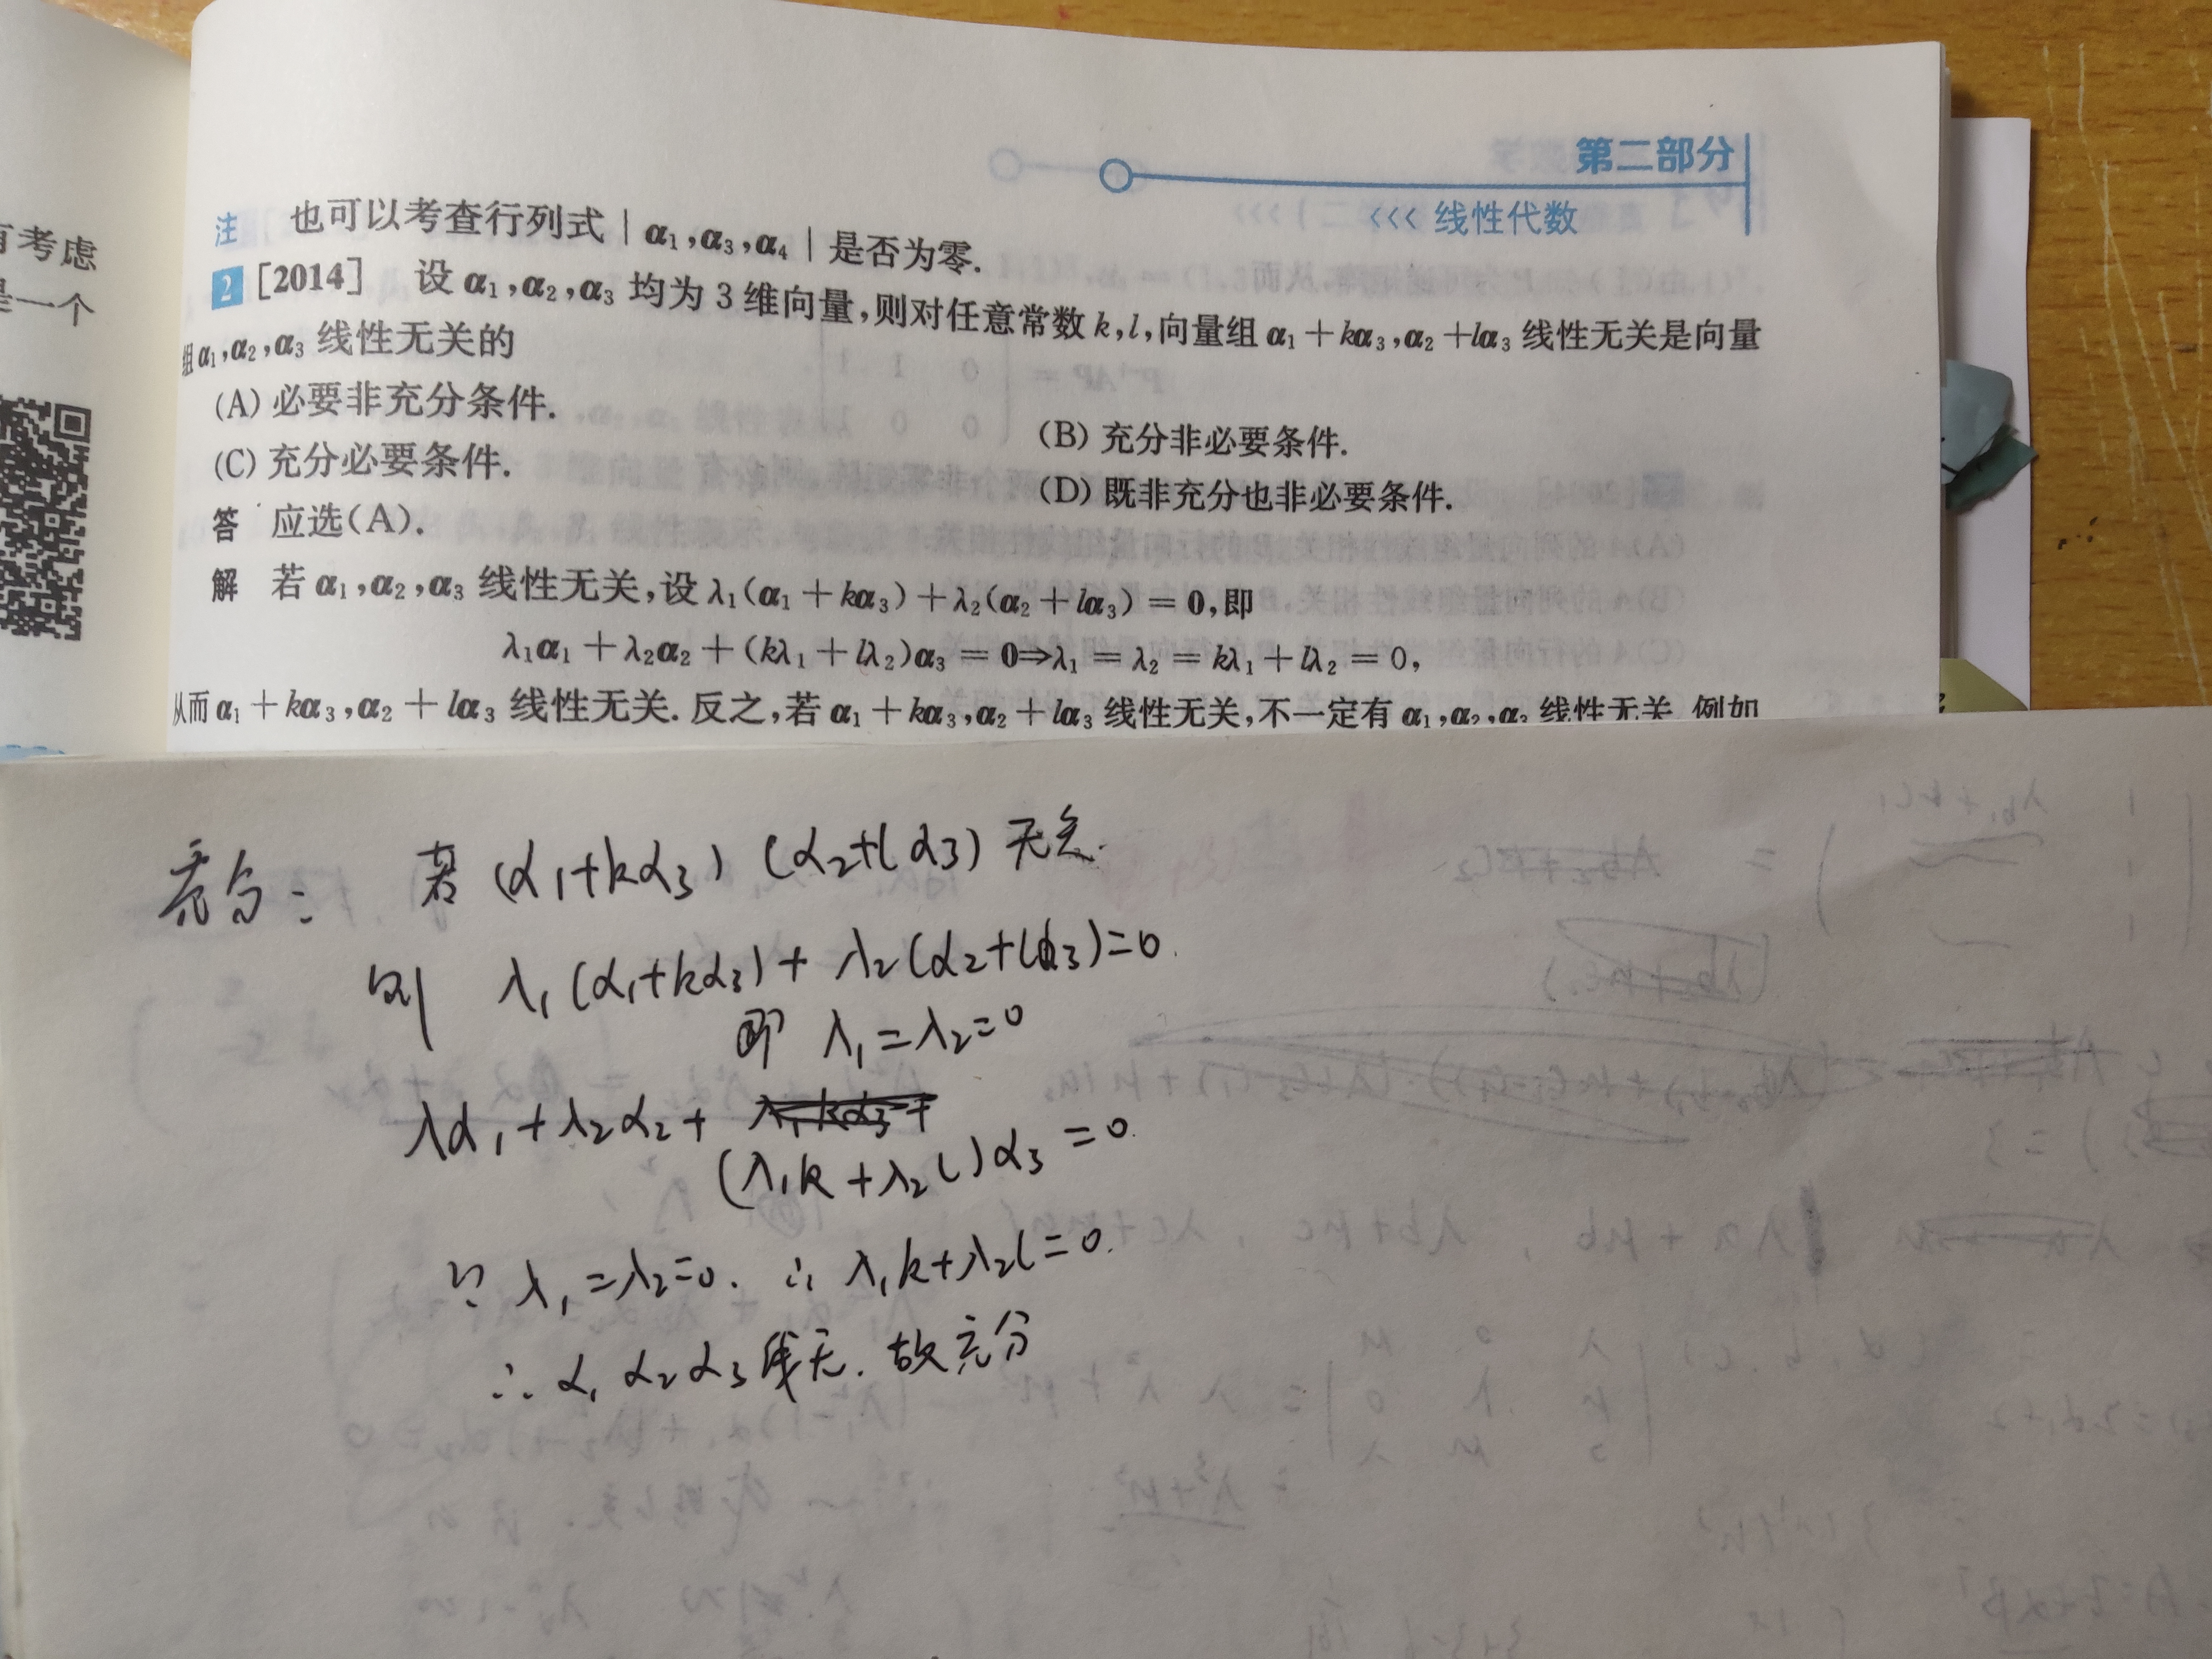 有考虑
是一个
第二部分
<<< 线性代数
注 也可以考查行列式 | α₁,α₃,α₄ | 是否为零.
2 [2014] 设 α₁,α₂,α₃ 均为 3 维向量,则对任意常数 k,l,向量组 α₁+kα₃,α₂+lα₃ 线性无关是向量
组 α₁,α₂,α₃ 线性无关的
(A) 必要非充分条件.
(B) 充分非必要条件.
(C) 充分必要条件.
(D) 既非充分也非必要条件.
答 应选(A).
解 若 α₁,α₂,α₃ 线性无关,设 λ₁(α₁+kα₃)+λ₂(α₂+lα₃)=0,即
λ₁α₁+λ₂α₂+(kλ₁+lλ₂)α₃=0⇒λ₁=λ₂=kλ₁+lλ₂=0,
从而 α₁+kα₃,α₂+lα₃ 线性无关. 反之,若 α₁+kα₃,α₂+lα₃ 线性无关,不一定有 α₁,α₂,α₃ 线性无关. 例如
充分: 若 (α₁+kα₃) (α₂+lα₃) 无关.
则 λ₁(α₁+kα₃)+λ₂(α₂+lα₃)=0.
即 λ₁=λ₂=0
λα₁+λ₂α₂+
(λ₁k+λ₂l)α₃=0.
∵ λ₁=λ₂=0. ∴ λ₁k+λ₂l=0.
∴ α₁ α₂ α₃ 线无. 故充分